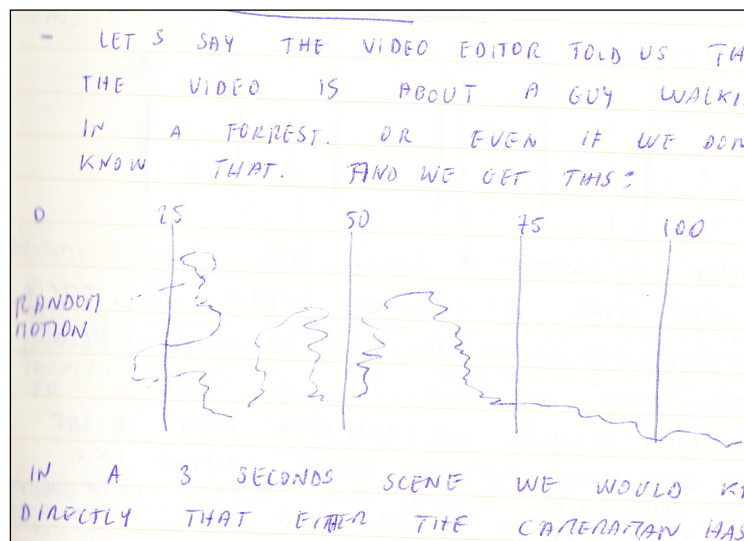 - LET S SAY THE VIDEO EDITOR TOLD US TH
THE VIDEO IS ABOUT A GUY WALKI
IN A FORREST. OR EVEN IF WE DON
KNOW THAT. AND WE GET THIS:
0 25 50 75 100
RANDOM
MOTION
IN A 3 SECONDS SCENE WE WOULD K
DIRECTLY THAT EITHER THE CAMERAMAN HAS